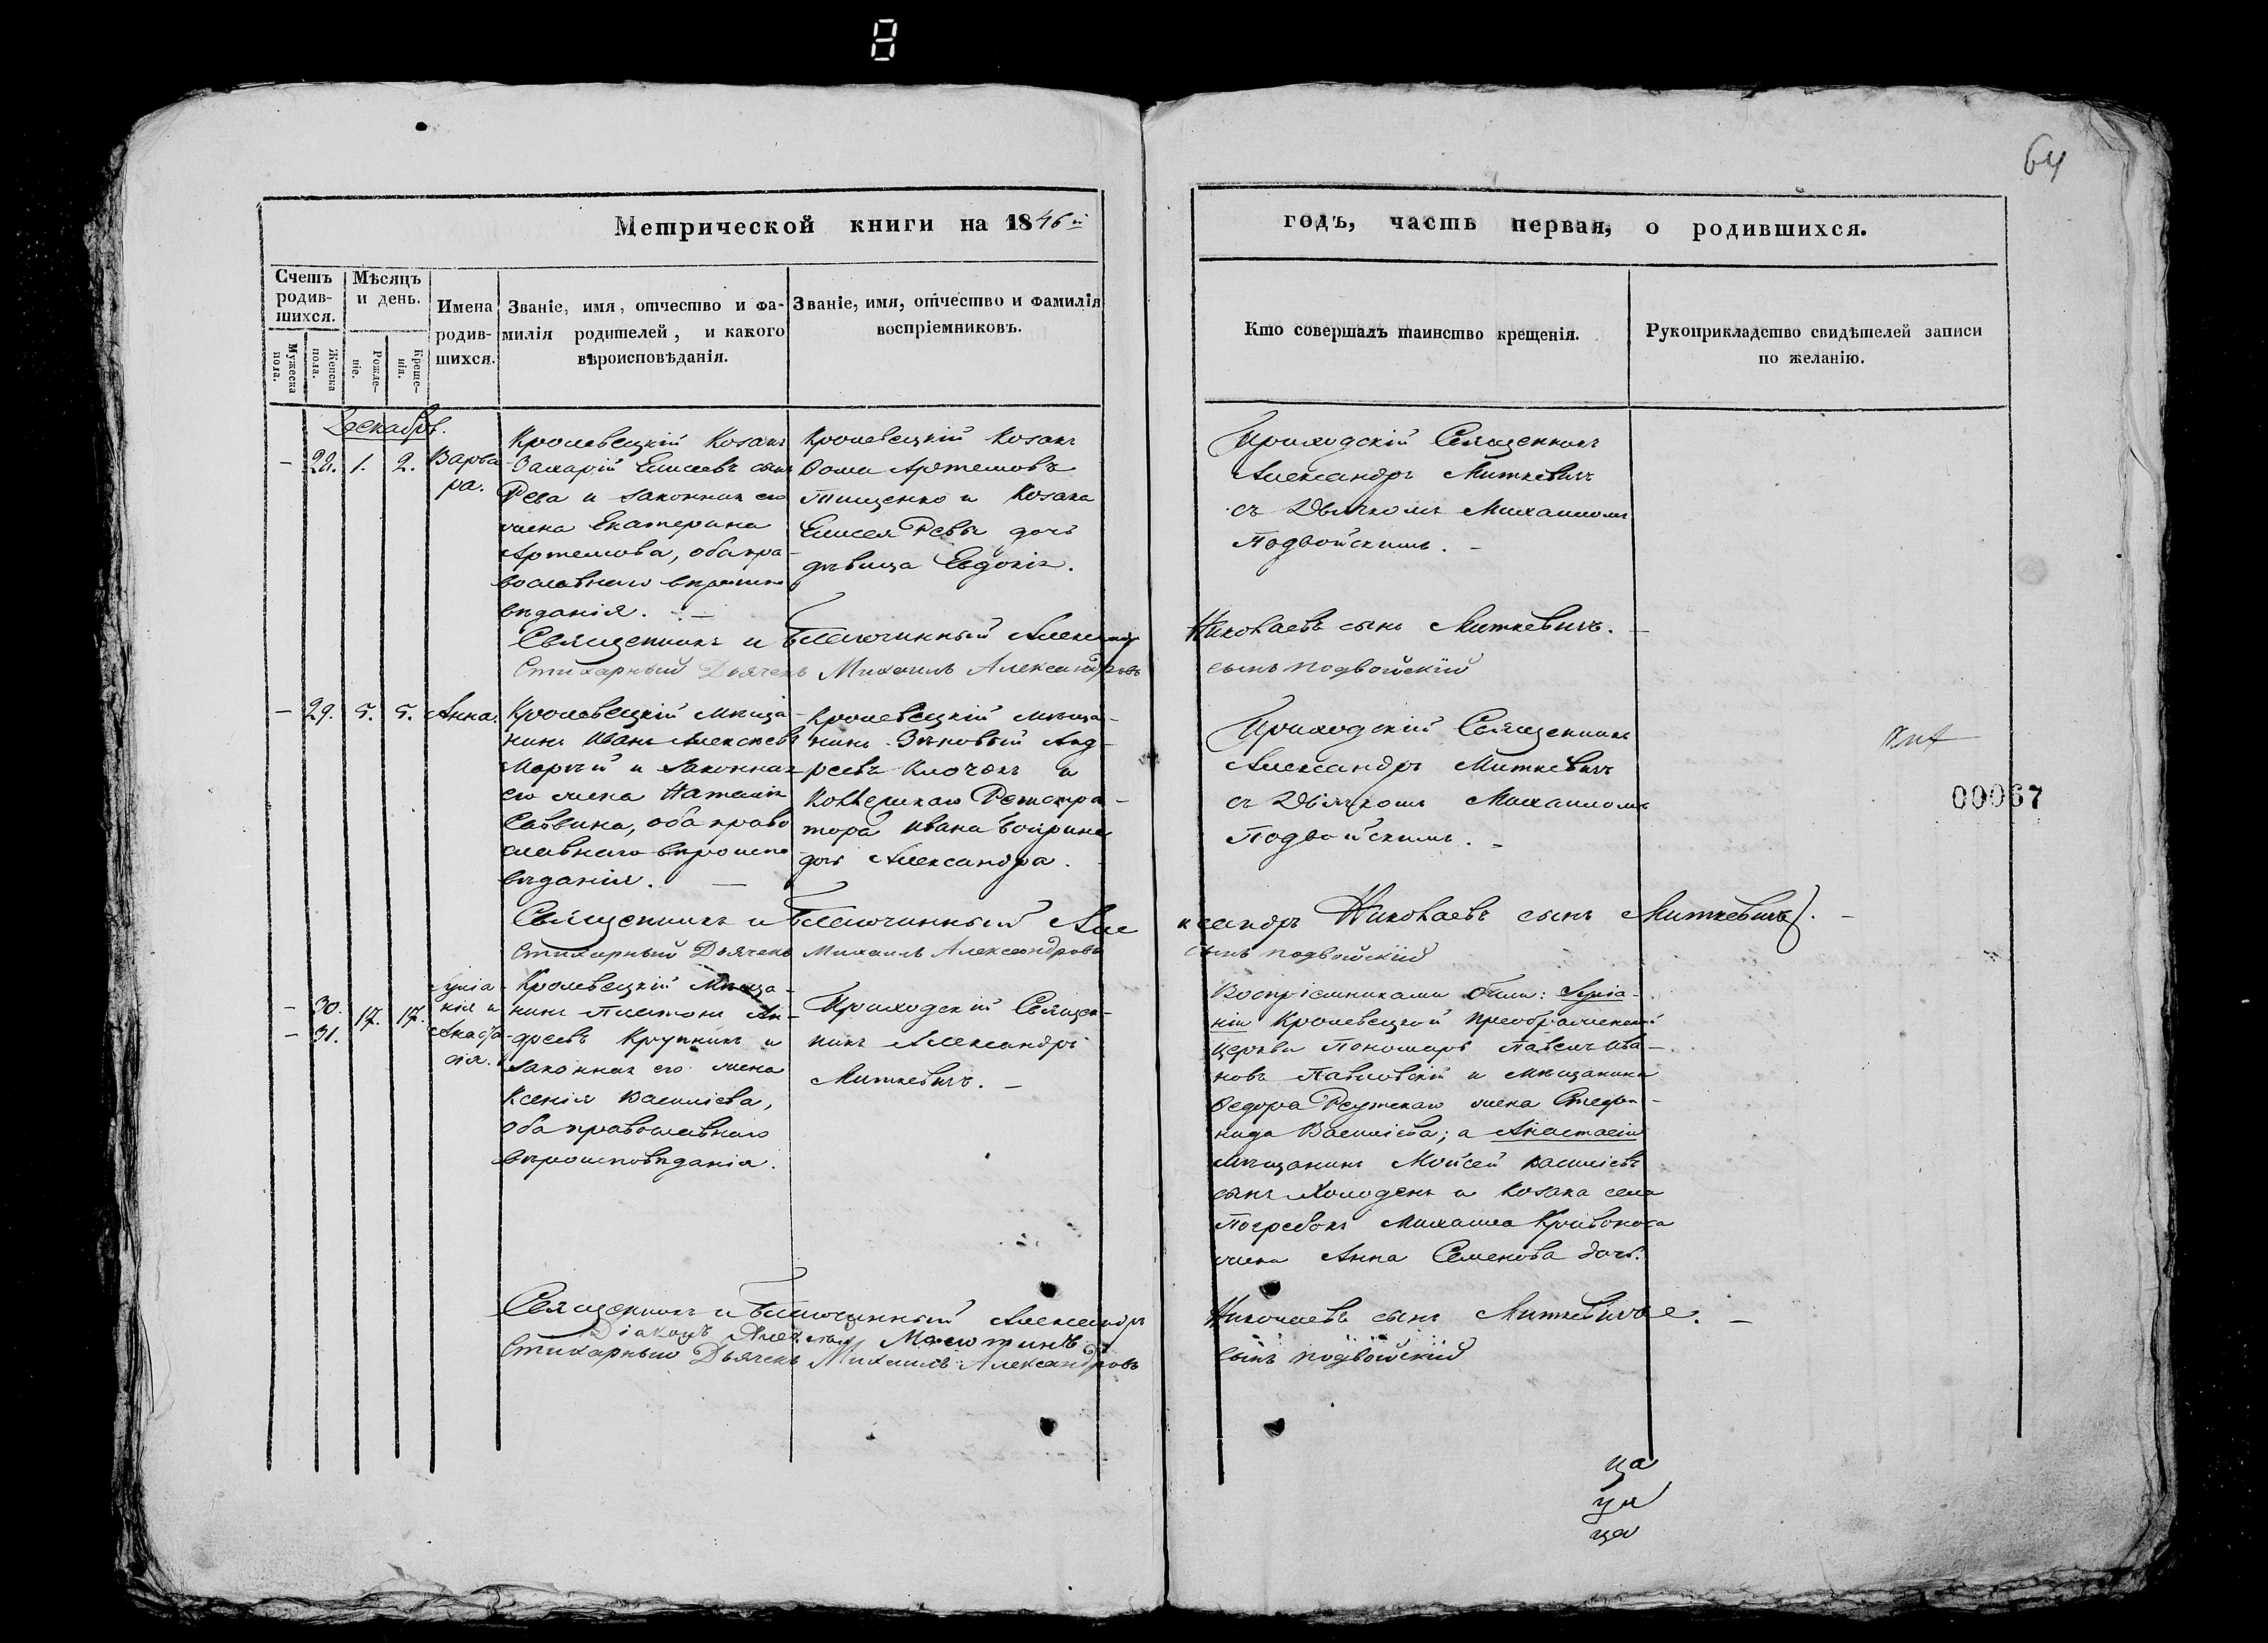 8
64
Метрической книги на 1846й
годъ, часть первая, о родившихся.
Счетъ родив-шихся.
Мѣсяцъ и день.
Мужеска пола.
Женска пола.
Рожде-нiе.
Креще-нiя.
Имена родив-шихся.
Званiе, имя, отчество и фа-
милiя родителей, и какого
вѣроисповѣданiя.
Званiе, имя, отчество и фамилiя
воспрiемниковъ.
Кто совершалъ таинство крещенiя.
Рукоприкладство свидѣтелей записи
по желанiю.
Декабрь.
– 28. 1. 2. Варва-
ра.
Кролевецкiй Козакъ
Захарiй Елисеевъ сынъ
Рева и законная его
жена Екатерина
Артемова, оба пра-
вославнаго вѣроиспо
вѣданiя. –
Кролевецкiй Козакъ
Фома Артемовъ
Тищенко и Козака
Елисея Ревы дочь
дѣвица Евдокiя.
Приходскiй Священникъ
Александръ Миткевичъ
съ Дьячкомъ Михаиломъ
Подвойскимъ. –
Священникъ и Благочинный Александръ Николаевъ сынъ Миткевичъ. –
Стихарный Дьячекъ Михаилъ Александровъ сынъ подвойскiй
– 29. 5. 5. Анна.
Кролевецкiй мѣща-
нинъ Иванъ Алексѣевъ
и законная
его жена Наталiя
Саввина, оба право
славнаго вѣроиспо
вѣданiя. –
Кролевецкiй мѣща-
нинъ Зѣновый Анд-
реевъ Клочокъ и
Коллежскаго Регистра-
тора Ивана
дочь Александра.
Приходскiй Священникъ
Александръ Миткевичъ
съ Дьячкомъ Михаиломъ
Подвойскимъ. –
00067
Священникъ и Благочинный Але
ксандръ Николаевъ сынъ Миткевичъ. –
Стихарный Дьячекъ Михаилъ Александровъ сынъ подвойскiй
– 30. 17. 17.
– 31.
кiя и
Анаста-
сiя.
Кролевецкiй Мѣща-
нинъ Платонъ Ан-
дреевъ Крупникъ и
законная его жена
Ксенiя Василiева,
оба православнаго
вѣроисповѣданiя.
Приходскiй Священ-
никъ Александръ
Миткевичъ. –
Воспрiемниками были:
Кролевецкой Преображенской
церкви Пономарь Павелъ Ива-
новъ Павловскiй и мѣщанина
Федора Реутскаго жена Стефа-
нида Василiева; а Анастасiи
мѣщанинъ Мойсей Василiевъ
сынъ Холоденъ и Козака села
Погребокъ Михаила Кривоноса
жена Анна Семенова дочь.
Священникъ и Благочинный Александръ Николаевъ сынъ Миткевичъ. –
Дiаконъ
Стихарный Дьячекъ Михаилъ Александровъ сынъ подвойскiй